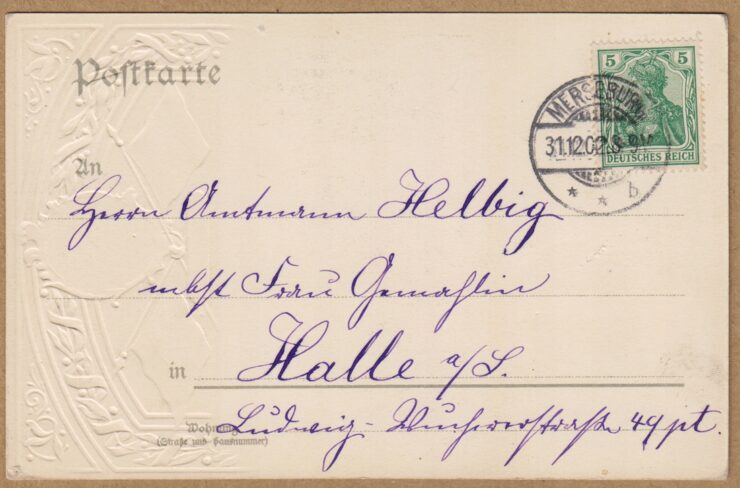 Postkarte
5 5
DEUTSCHES REICH
MERSEBURG
31.12.02.8-9V.
* * b
An
Herrn Amtmann Helbig
nebst Frau Gemahlin
in Halle a/S.
Wohnung
(Straße und Hausnummer)
Ludwig-Wuchererstraße 49 pt.